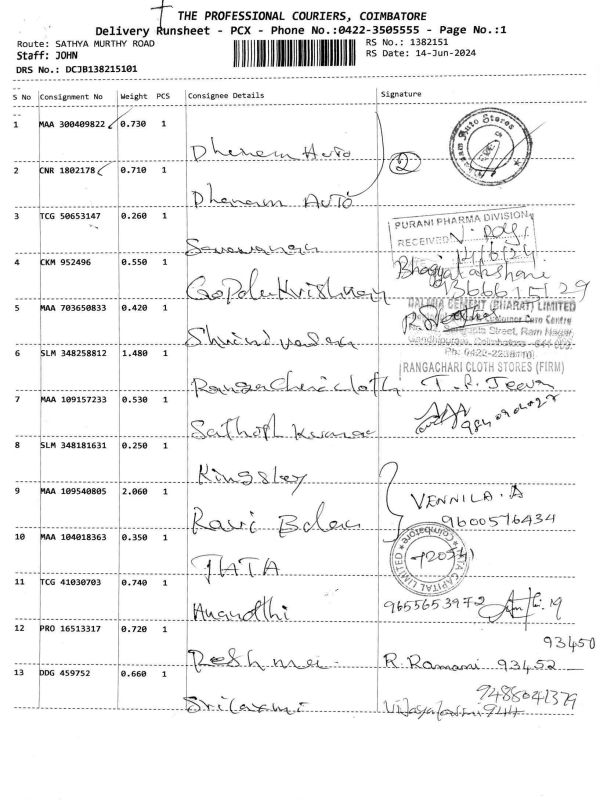 THE PROFESSIONAL COURIERS, COIMBATORE
Delivery Runsheet - PCX - Phone No.:0422-3505555 - Page No.:1
Route: SATHYA MURTHY ROAD RS No.: 1382151
Staff: JOHN RS Date: 14-Jun-2024
DRS No.: DCJB138215101
S No Consignment No Weight PCS Consignee Details Signature
1 MAA 300409822 0.730 1
Dhanam Auto 2
Auto Stores
2 CNR 1802178 0.710 1
Dhanam Auto
3 TCG 50653147 0.260 1
Saravanan
PURANI PHARMA DIVISION
RECEIVED
14/6/24
4 CKM 952496 0.550 1
Gopalakrishnan
5 MAA 703650833 0.420 1
Shrinivasan
DALMIA CEMENT (BHARAT) LIMITED
Customer Care Centre
Street, Ram Nagar,
Gandhipuram, Coimbatore - 641 009.
Ph: 0422-2238110
6 SLM 348258812 1.480 1
Rangachari cloth
RANGACHARI CLOTH STORES (FIRM)
T. R. Jeeva
7 MAA 109157233 0.530 1
Sathosh Kumar
8 SLM 348181631 0.250 1
Kingsley
9 MAA 109540805 2.060 1
Ravi Balan
VENNILA. A
9600576434
10 MAA 104018363 0.350 1
TATA
TATA CAPITAL LIMITED
Coimbatore
11 TCG 41030703 0.740 1
Anandthi 9655653972
12 PRO 16513317 0.720 1
Reshma R. Ramani 93452
93450
13 DDG 459752 0.660 1
Srilaxmi 944
9488041379